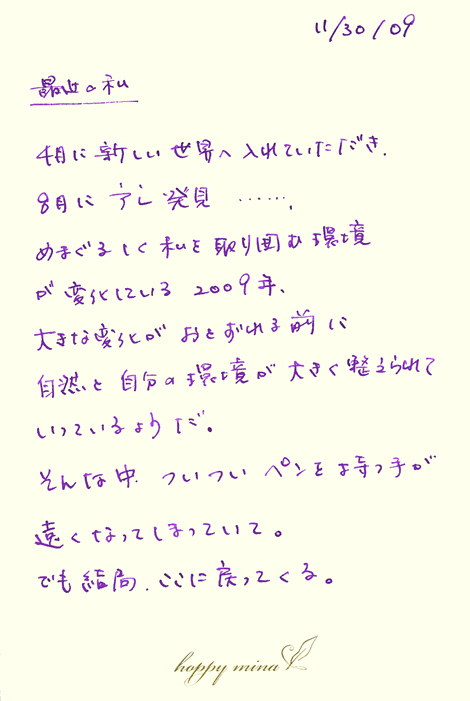 11/30/09
最近の私
4月に新しい世界へ入れていただき、
8月に 発見 ……、
めまぐるしく私を取り囲む環境
が変化している 2009年、
大きな変化がおとずれる前に
自然と自分の環境が大きく整えられて
いっているようだ。
そんな中 ついつい ペンを持つ手が
遠くなってしまっていて。
でも結局、ここに戻ってくる。
happy mina